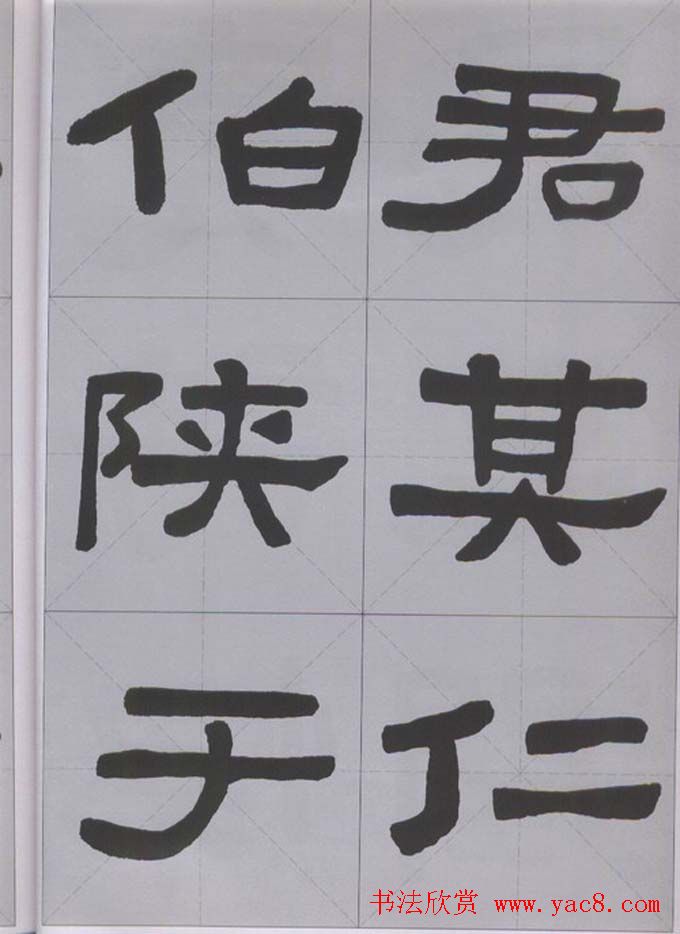 君其仁
伯陕于
书法欣赏 www.yac8.com